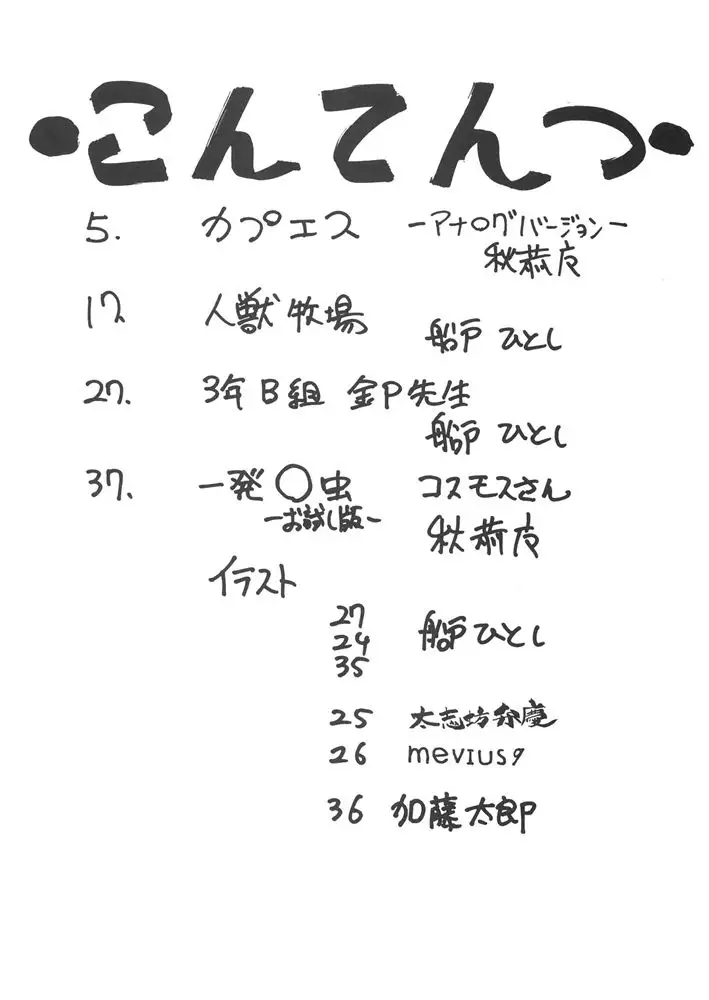 ・こんてんつ・
5. カプエス －アナログバージョン－
秋恭摩
17. 人獣牧場
船戸ひとし
27. 3年B組 金P先生
船戸ひとし
37. 一発〇虫 コスモスさん
－お試し版－
秋恭摩
イラスト
27
24 船戸ひとし
35
25 太志坊弁慶
26 mevius9
36 加藤太郎